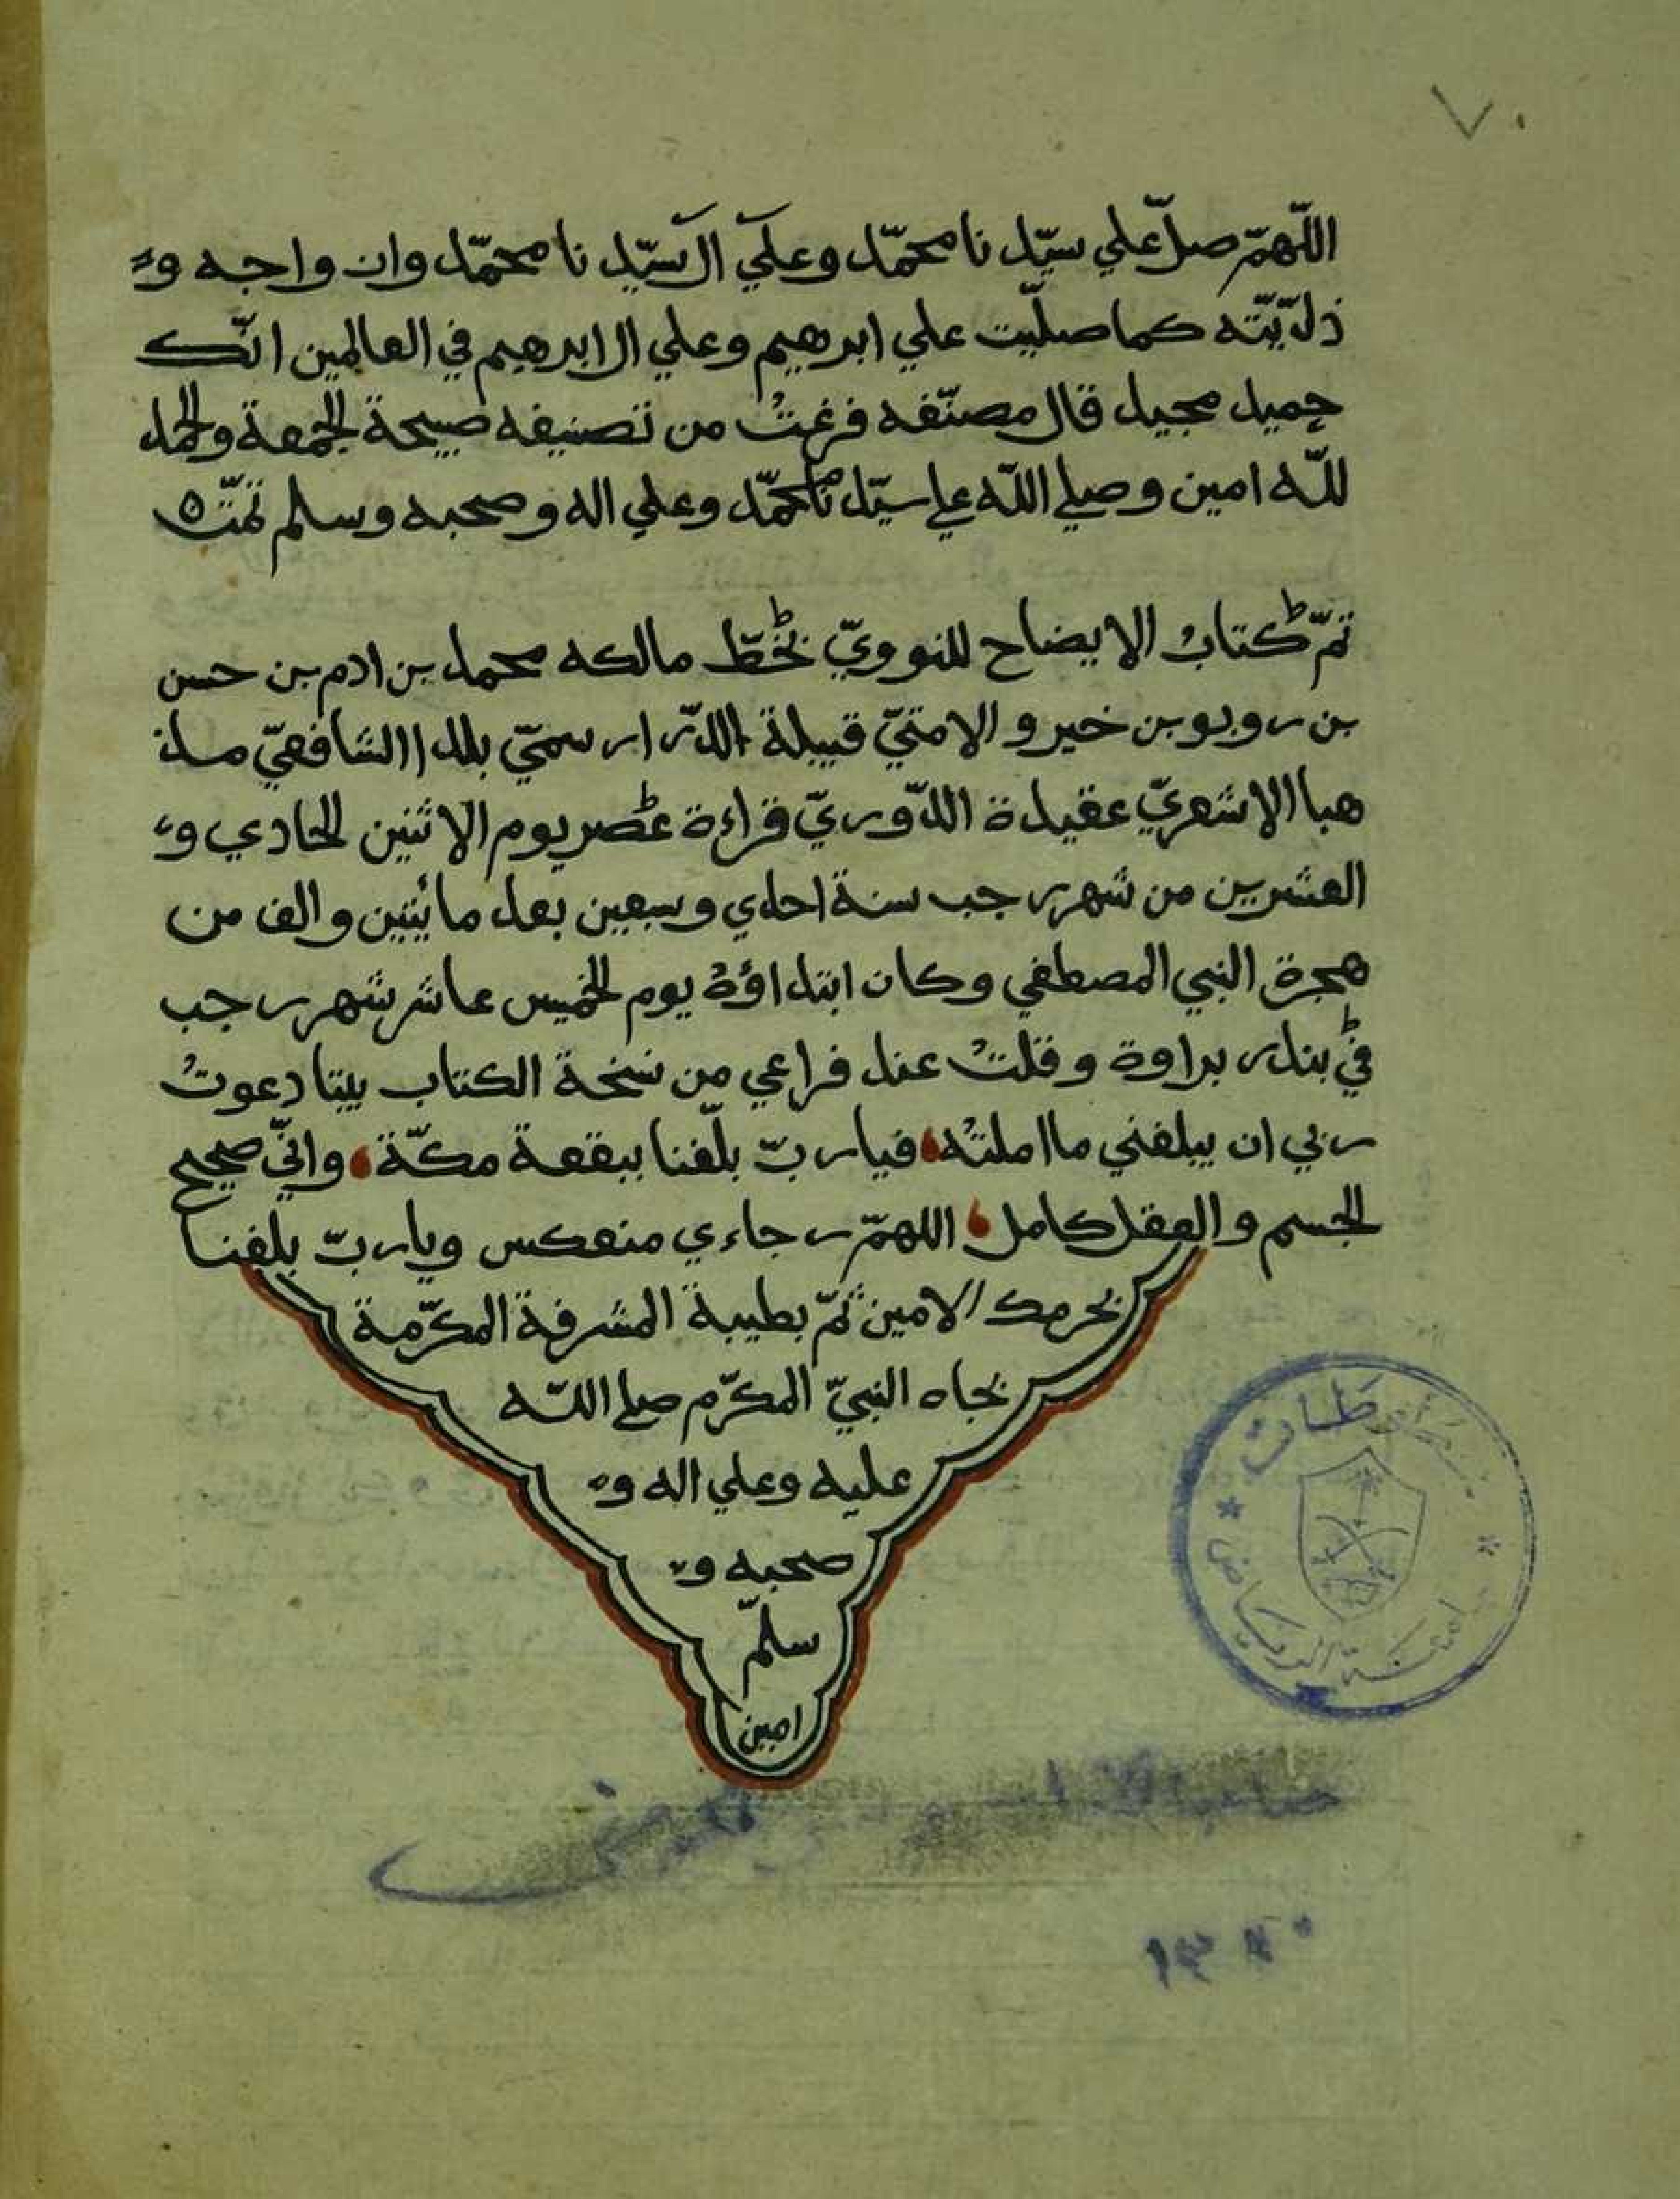 ٧٠
اللّهمّ صلّ علي سيّد نا محمّد وعلي آل سيّد نا محمّد وازواجه و
ذرّيّته كما صلّيت علي ابرهيم وعلي ال ابرهيم في العالمين انّك
حميد مجيد قال مصنّفه فرغتُ من تصنيفه صبيحة الجمعة والحمد
للّه امين وصلي اللّه علي سيّد نا محمّد وعلي اله وصحبه وسلم تمّت ٥
تمّ كتابُ الايضاح للنوويّ بخطّ مالكه محمد بن ادم بن حسن
بن روبو بن خيرو الامتيّ قبيلة الدّرار سميّ بلدا الشافعيّ مذ
هبا الاشعريّ عقيدة الدّوريّ قراءة عصر يوم الاثنين الحادي و
العشرين من شهر رجب سنة احدي وسبعين بعد مائتين والف من
هجرة النبي المصطفي وكان ابتداؤهُ يوم الخميس عاشر شهر رجب
في بندر براوة وقلتُ عند فراغي من نسخة الكتاب بيتا دعوتُ
ربي ان يبلغني ما املتهُ فيارتّ بلّغنا ببقعة مكّة وانّي صحيح
الجسم والعقل كامل اللهمّ رجاءي منعكس ويا ربّ بلغنا
بحرمك الامين ثمّ بطيبة المشرفة المكرّمة
بجاه النبيّ المكرّم صلي اللّه
عليه وعلي اله و
صحبه و
سلمّ
امين
جامعة الرياض